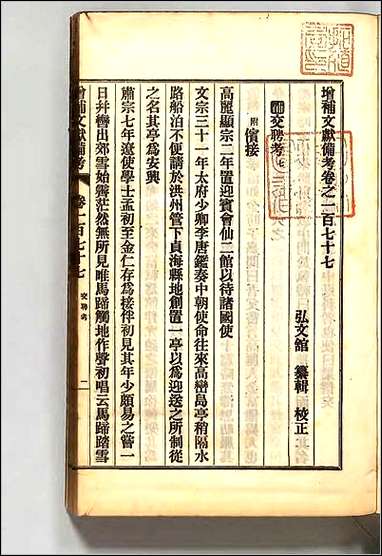 增補文獻備考卷之一百七十七
弘文館 纂輯 校正
補交聘考七
附儐接
高麗顯宗二年置迎賓會仙二館以待諸國使
文宗三十一年太府少卿李唐鑑奏中朝使命往來高巒島亭稍隔水
路船泊不便請於洪州管下貞海縣地創置一亭以爲迎送之所制從
之名其亭爲安興
肅宗七年遼使學士孟初至金仁存爲接伴初見其年少頗易之嘗一
日幷轡出郊雪始霽茫然無所見唯馬蹄觸地作聲初唱云馬蹄踏雪
增補文獻備考 卷一百七十七 交聘考 一